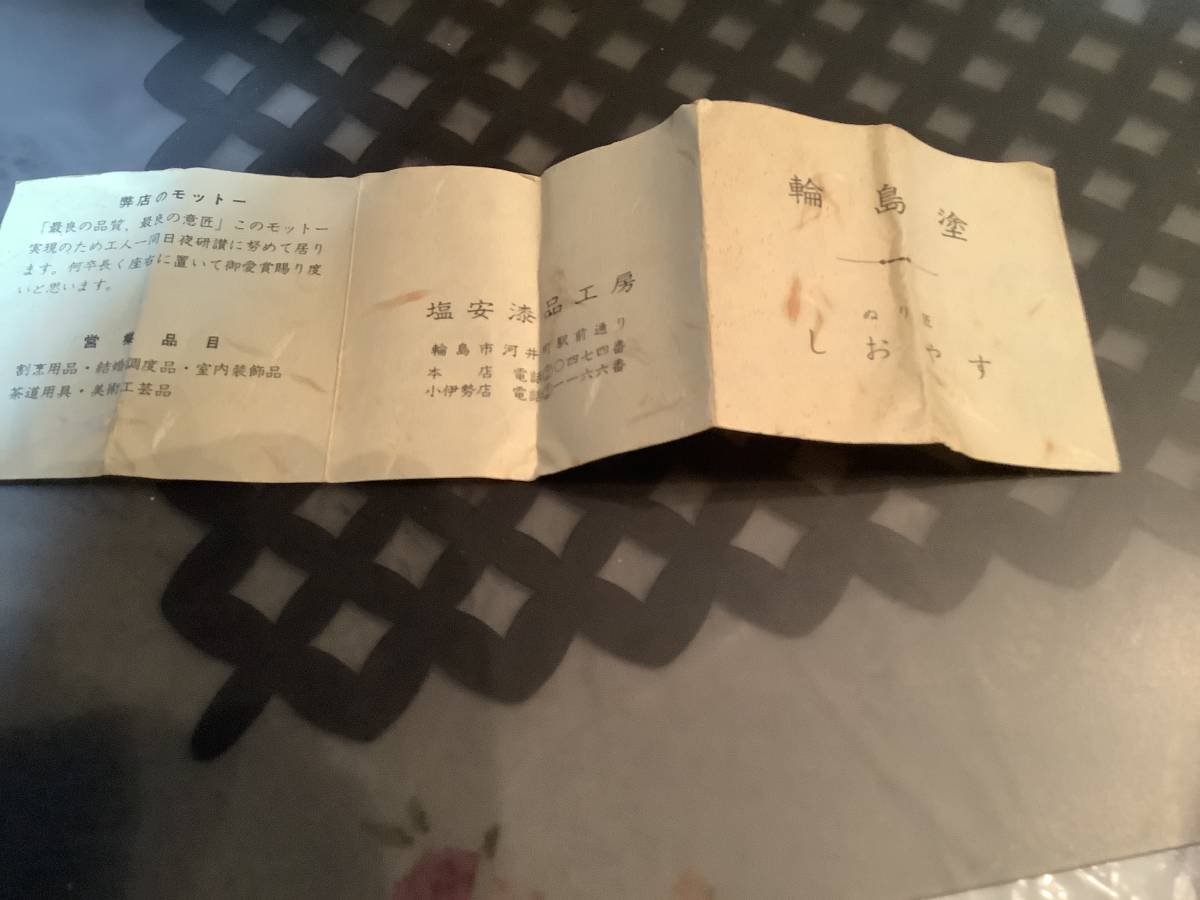 弊店のモットー
「最良の品質、最良の意匠」このモットー
実現のため工人一同日夜研讃に努めて居り
ます。何卒長く座右に置いて御愛賞賜り度
いと思います。
営業品目
割烹用品・結婚調度品・室内装飾品
茶道用具・美術工芸品
塩安漆品工房
輪島市河井町駅前通り
本店 電話②〇四七四番
小伊勢店 電話②一一六六番
輪島塗
ぬりモ
しおやす